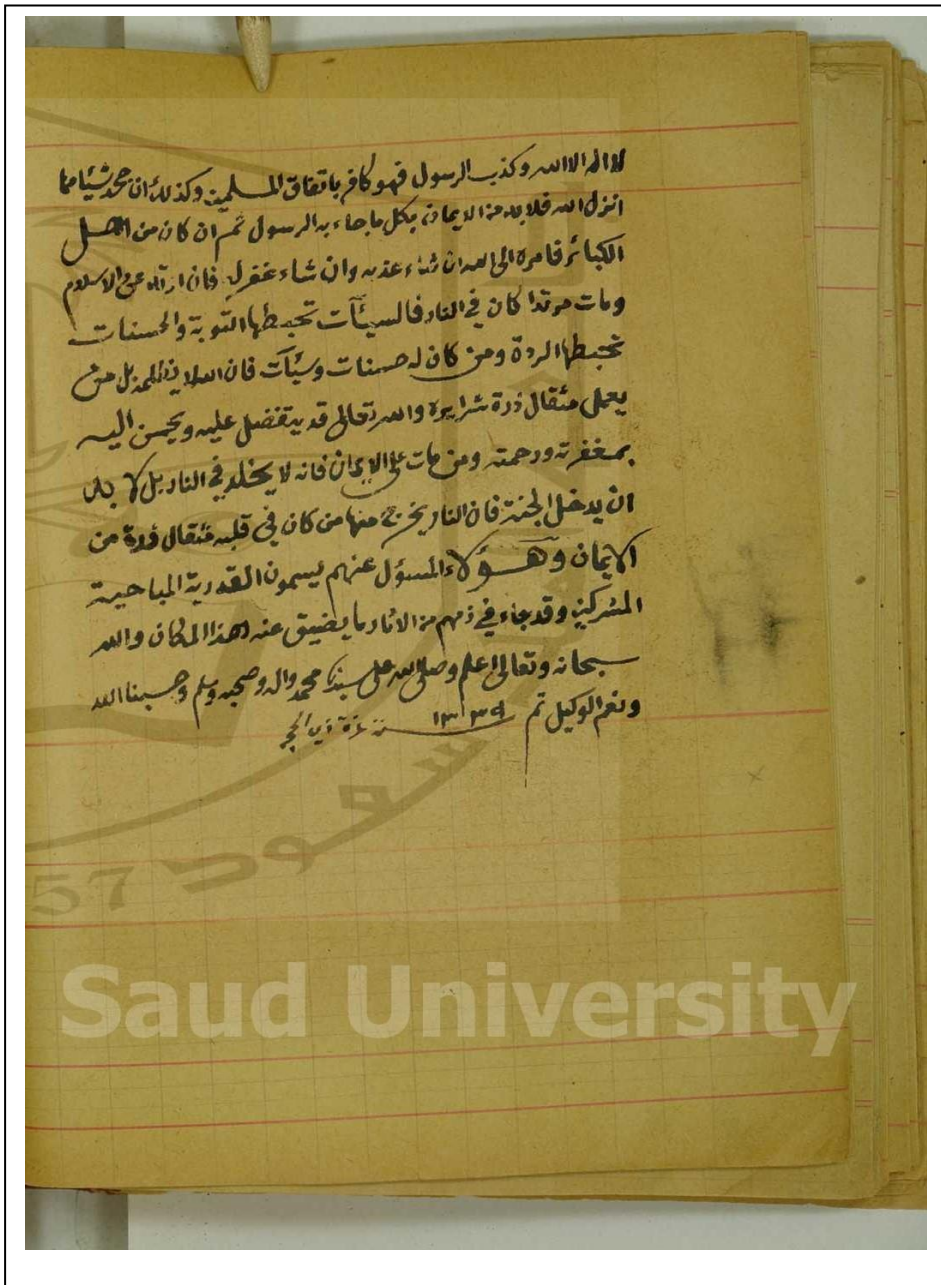 لا اله الا الله وكذب الرسول فهو كافر باتفاق المسلمين وكذلك ان جحد شيئا مما
انزل الله فلا بد من الايمان بكل ما جاء به الرسول ثم ان كان من اهل
الكبائر فامره الى الله ان شاء عذبه وان شاء غفر له فان ارتد عن الاسلام
ومات مرتدا كان في النار فالسيئآت تحبطها التوبة والحسنات
تحبطها الردة ومن كان له حسنات وسيئآت فان الله لا يظلمه بل من
يعمل مثقال ذرة شرا يره والله تعالى قد يتفضل عليه ويحسن اليه
بمغفرته ورحمته ومن مات على الايمان فانه لا يخلد في النار بل لا بد
ان يدخل الجنة فان النار يخرج منها من كان في قلبه مثقال ذرة من
الايمان وهؤلاء المسؤل عنهم يسمون القدرية المباحية
المشركين وقد جاء في ذمهم من الاثار ما يضيق عنه هذا المكان والله
سبحانه وتعالى اعلم وصلى الله على سيدنا محمد واله وصحبه وسلم وحسبنا الله
ونعم الوكيل تم ١٣٣٩ سنة
سعود
57
Saud University